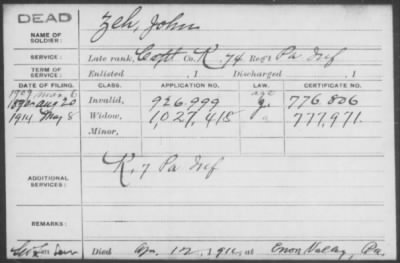 DEAD
NAME OF SOLDIER: Zeh, John
SERVICE: Late rank, Capt Co. K, 74 Reg't Pa Inf
TERM OF SERVICE: Enlisted , 1 Discharged , 1
DATE OF FILING. CLASS. APPLICATION NO. LAW. CERTIFICATE NO.
1907 Mar 6 age
Aug 20 Invalid, 926,999 g. 776,806
1914 May 8 Widow, 1,027,418 777,971
Minor,
ADDITIONAL SERVICES: K, 7 Pa Inf
REMARKS:
Died Apr. 12, 1914, at Enon Valley, Pa.